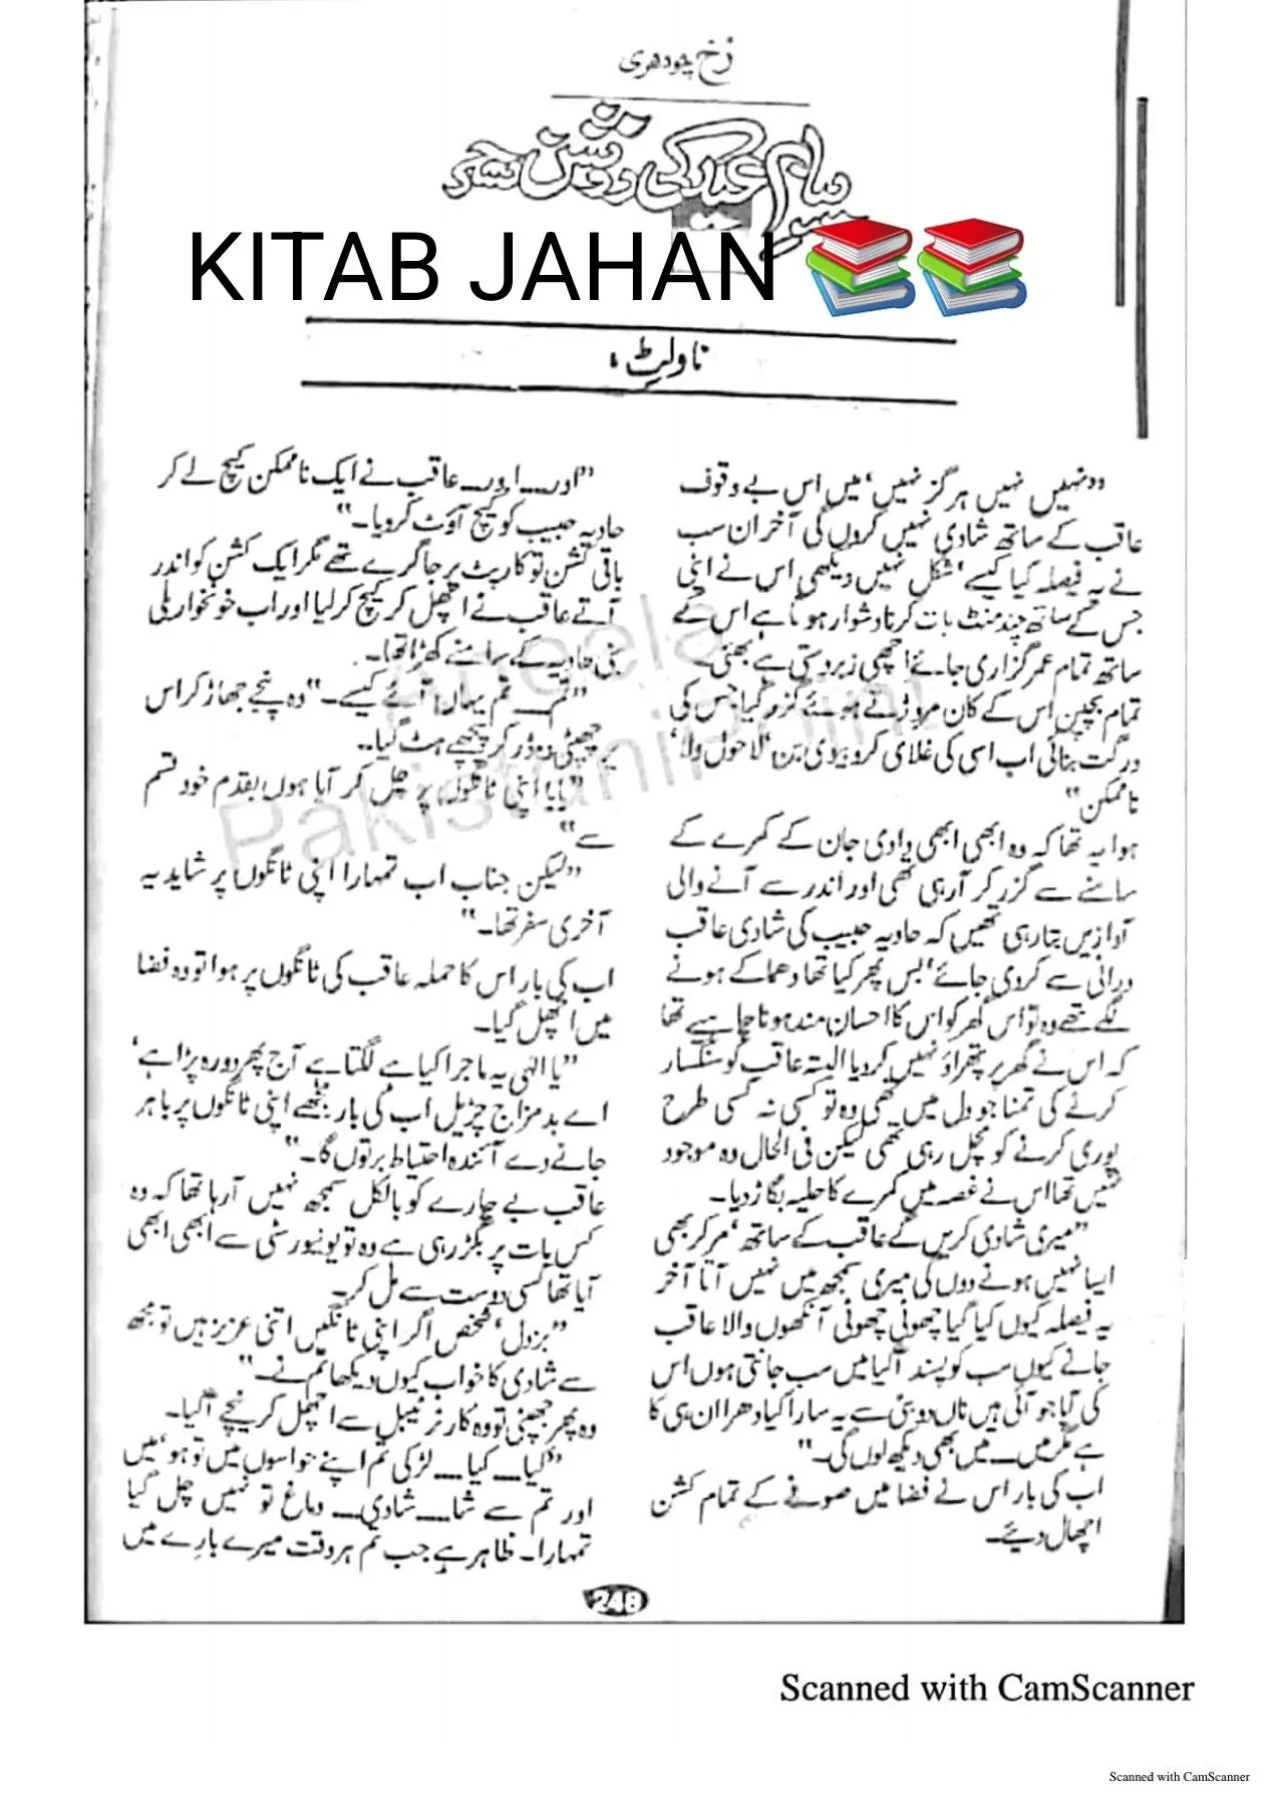 رُخ چودھری
KITAB JAHAN 📚📚
ناولٹ
"نہیں نہیں ہرگز نہیں' میں اس بے وقوف
عاقب کے ساتھ شادی نہیں کروں گی آخر ان سب
نے یہ فیصلہ کیا کیسے' شکل نہیں دیکھی اس نے اپنی
جس کے ساتھ چند منٹ بات کرنا دشوار ہوتا ہے اس کے
ساتھ تمام عمر گزاری جائے اچھی زبردستی ہے بھئی۔
تمام بچپن اس کے کان مروڑتے ہوئے گزر گیا جس کی
درگت بنائی اب اسی کی غلامی کرو بیوی بن' لاحول ولا'
ناممکن"
ہوا یہ تھا کہ وہ ابھی ابھی دادی جان کے کمرے کے
سامنے سے گزر کر آرہی تھی اور اندر سے آنے والی
آوازیں بتا رہی تھیں کہ حادیہ حبیب کی شادی عاقب
درانی سے کردی جائے' بس پھر کیا تھا دھماکے ہونے
لگے تھے وہ تو اس گھر کو اس کا احسان مند ہونا چاہیے تھا
کہ اس نے گھر پر پتھراؤ نہیں کردیا البتہ عاقب کو سنگسار
کرنے کی تمنا جو دل میں تھی وہ تو کسی نہ کسی طرح
پوری کرنے کو مچل رہی تھی لیکن فی الحال وہ موجود
نہیں تھا اس نے غصہ میں کمرے کا حلیہ بگاڑ دیا۔
"میری شادی کریں گے عاقب کے ساتھ' مر کر بھی
ایسا نہیں ہونے دوں گی میری سمجھ میں نہیں آتا آخر
یہ فیصلہ کیوں کیا گیا چھوٹی چھوٹی آنکھوں والا عاقب
جانے کیوں سب کو پسند آگیا میں سب جانتی ہوں اس
کی آپا جو آئی ہیں ناں دوبئی سے یہ سارا کیا دھرا ان ہی کا
ہے مگر میں۔۔۔ میں بھی دیکھ لوں گی۔"
اب کی بار اس نے فضا میں صوفے کے تمام کشن
اچھال دیئے۔
"اور۔۔۔ اور۔۔۔ عاقب نے ایک ناممکن کیچ لے کر
حادیہ حبیب کو کیچ آؤٹ کردیا۔"
باقی کشن تو کارپٹ پر جا گرے تھے مگر ایک کشن کو اندر
آتے عاقب نے اچھل کر کیچ کرلیا اور اب خونخوار بلی
بنی حادیہ کے سامنے کھڑا تھا۔
"تم۔۔۔ تم یہاں آئے کیسے۔" وہ پنجے جھاڑ کر اس
پر جھپٹی وہ دوڑ کر پیچھے ہٹ گیا۔
اپنی ٹانگوں پر چل کر آیا ہوں بقلم خود قسم
سے"
"لیکن جناب اب تمہارا اپنی ٹانگوں پر شاید یہ
آخری سفر تھا۔"
اب کی بار اس کا حملہ عاقب کی ٹانگوں پر ہوا تو وہ فضا
میں اچھل گیا۔
"یا الٰہی یہ ماجرا کیا ہے لگتا ہے آج پھر دورہ پڑا ہے'
اے بدمزاج چڑیل اب کی بار مجھے اپنی ٹانگوں پر باہر
جانے دے آئندہ احتیاط برتوں گا۔"
عاقب بے چارے کو بالکل سمجھ نہیں آرہا تھا کہ وہ
کس بات پر بگڑ رہی ہے وہ تو یونیورسٹی سے ابھی ابھی
آیا تھا کسی دوست سے مل کر۔
"بزدل' شخص اگر اپنی ٹانگیں اتنی عزیز ہیں تو مجھ
سے شادی کا خواب کیوں دیکھا تم نے۔"
وہ پھر جھپٹی تو وہ کارنر ٹیبل سے اچھل کر نیچے آگیا۔
"کیا۔۔۔ کیا۔۔۔ لڑکی تم اپنے حواسوں میں تو ہو' میں
اور تم سے شا۔۔۔ شادی۔۔۔ دماغ تو نہیں چل گیا
تمہارا۔ ظاہر ہے جب تم ہر وقت میرے بارے میں
248
Scanned with CamScanner
Scanned with CamScanner